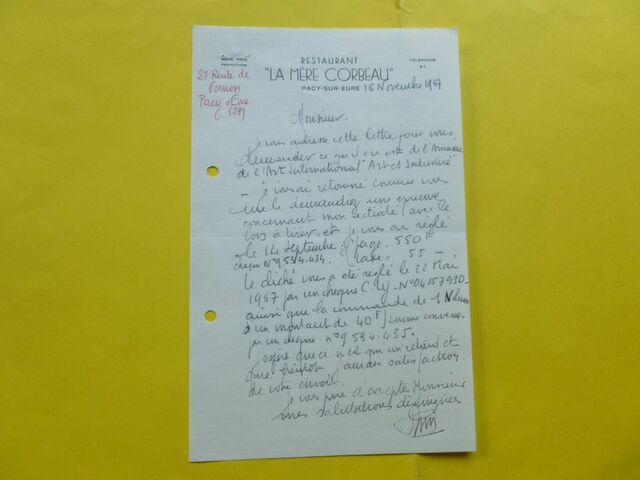 RENÉ PRIN
PROPRIÉTAIRE
RESTAURANT
"LA MÈRE CORBEAU"
PACY-SUR-EURE
TÉLÉPHONE
16 Novembre 1967
21 Route de
Vernon
Pacy s/Eure
(29)
Monsieur.
Je vous adresse cette lettre pour vous
demander ce qu'il en est de l'Annuaire
de l'Art International "Art et Industrie"
- Je vous ai retourné comme vous
me le demandiez une épreuve
concernant mon activité, avec le
bon à tirer, et je vous ai réglé
le 14 Septembre 1/2 page. 550 F
chèque N° 9534.434. taxe. 55 -
Le cliché vous a été réglé le 22 Mai
1967 par un chèque - N° 04157930 -
ainsi que la commande de 1 Volume
d'un montant de 40 F comme convenu
par un chèque. n° 9534.435.
J'espère que ce n'est qu'un retard et
que bientôt j'aurai satisfaction
de votre envoi.
Je vous prie d'accepter Monsieur
mes salutations distinguées